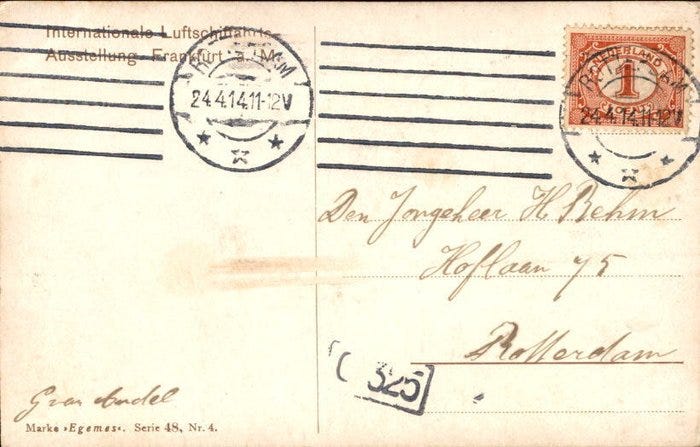 Internationale Luftschiffahrts
Ausstellung Frankfurt a./M.
ROTTERDAM
24.4.14.11-12V
NEDERLAND
1
CENT
ROTTERDAM
24.4.14.11-12V
Den Jongeheer H. Behm
Hoflaan 75
Rotterdam
C 325
G van Andel
Marke »Egemes«. Serie 48, Nr. 4.